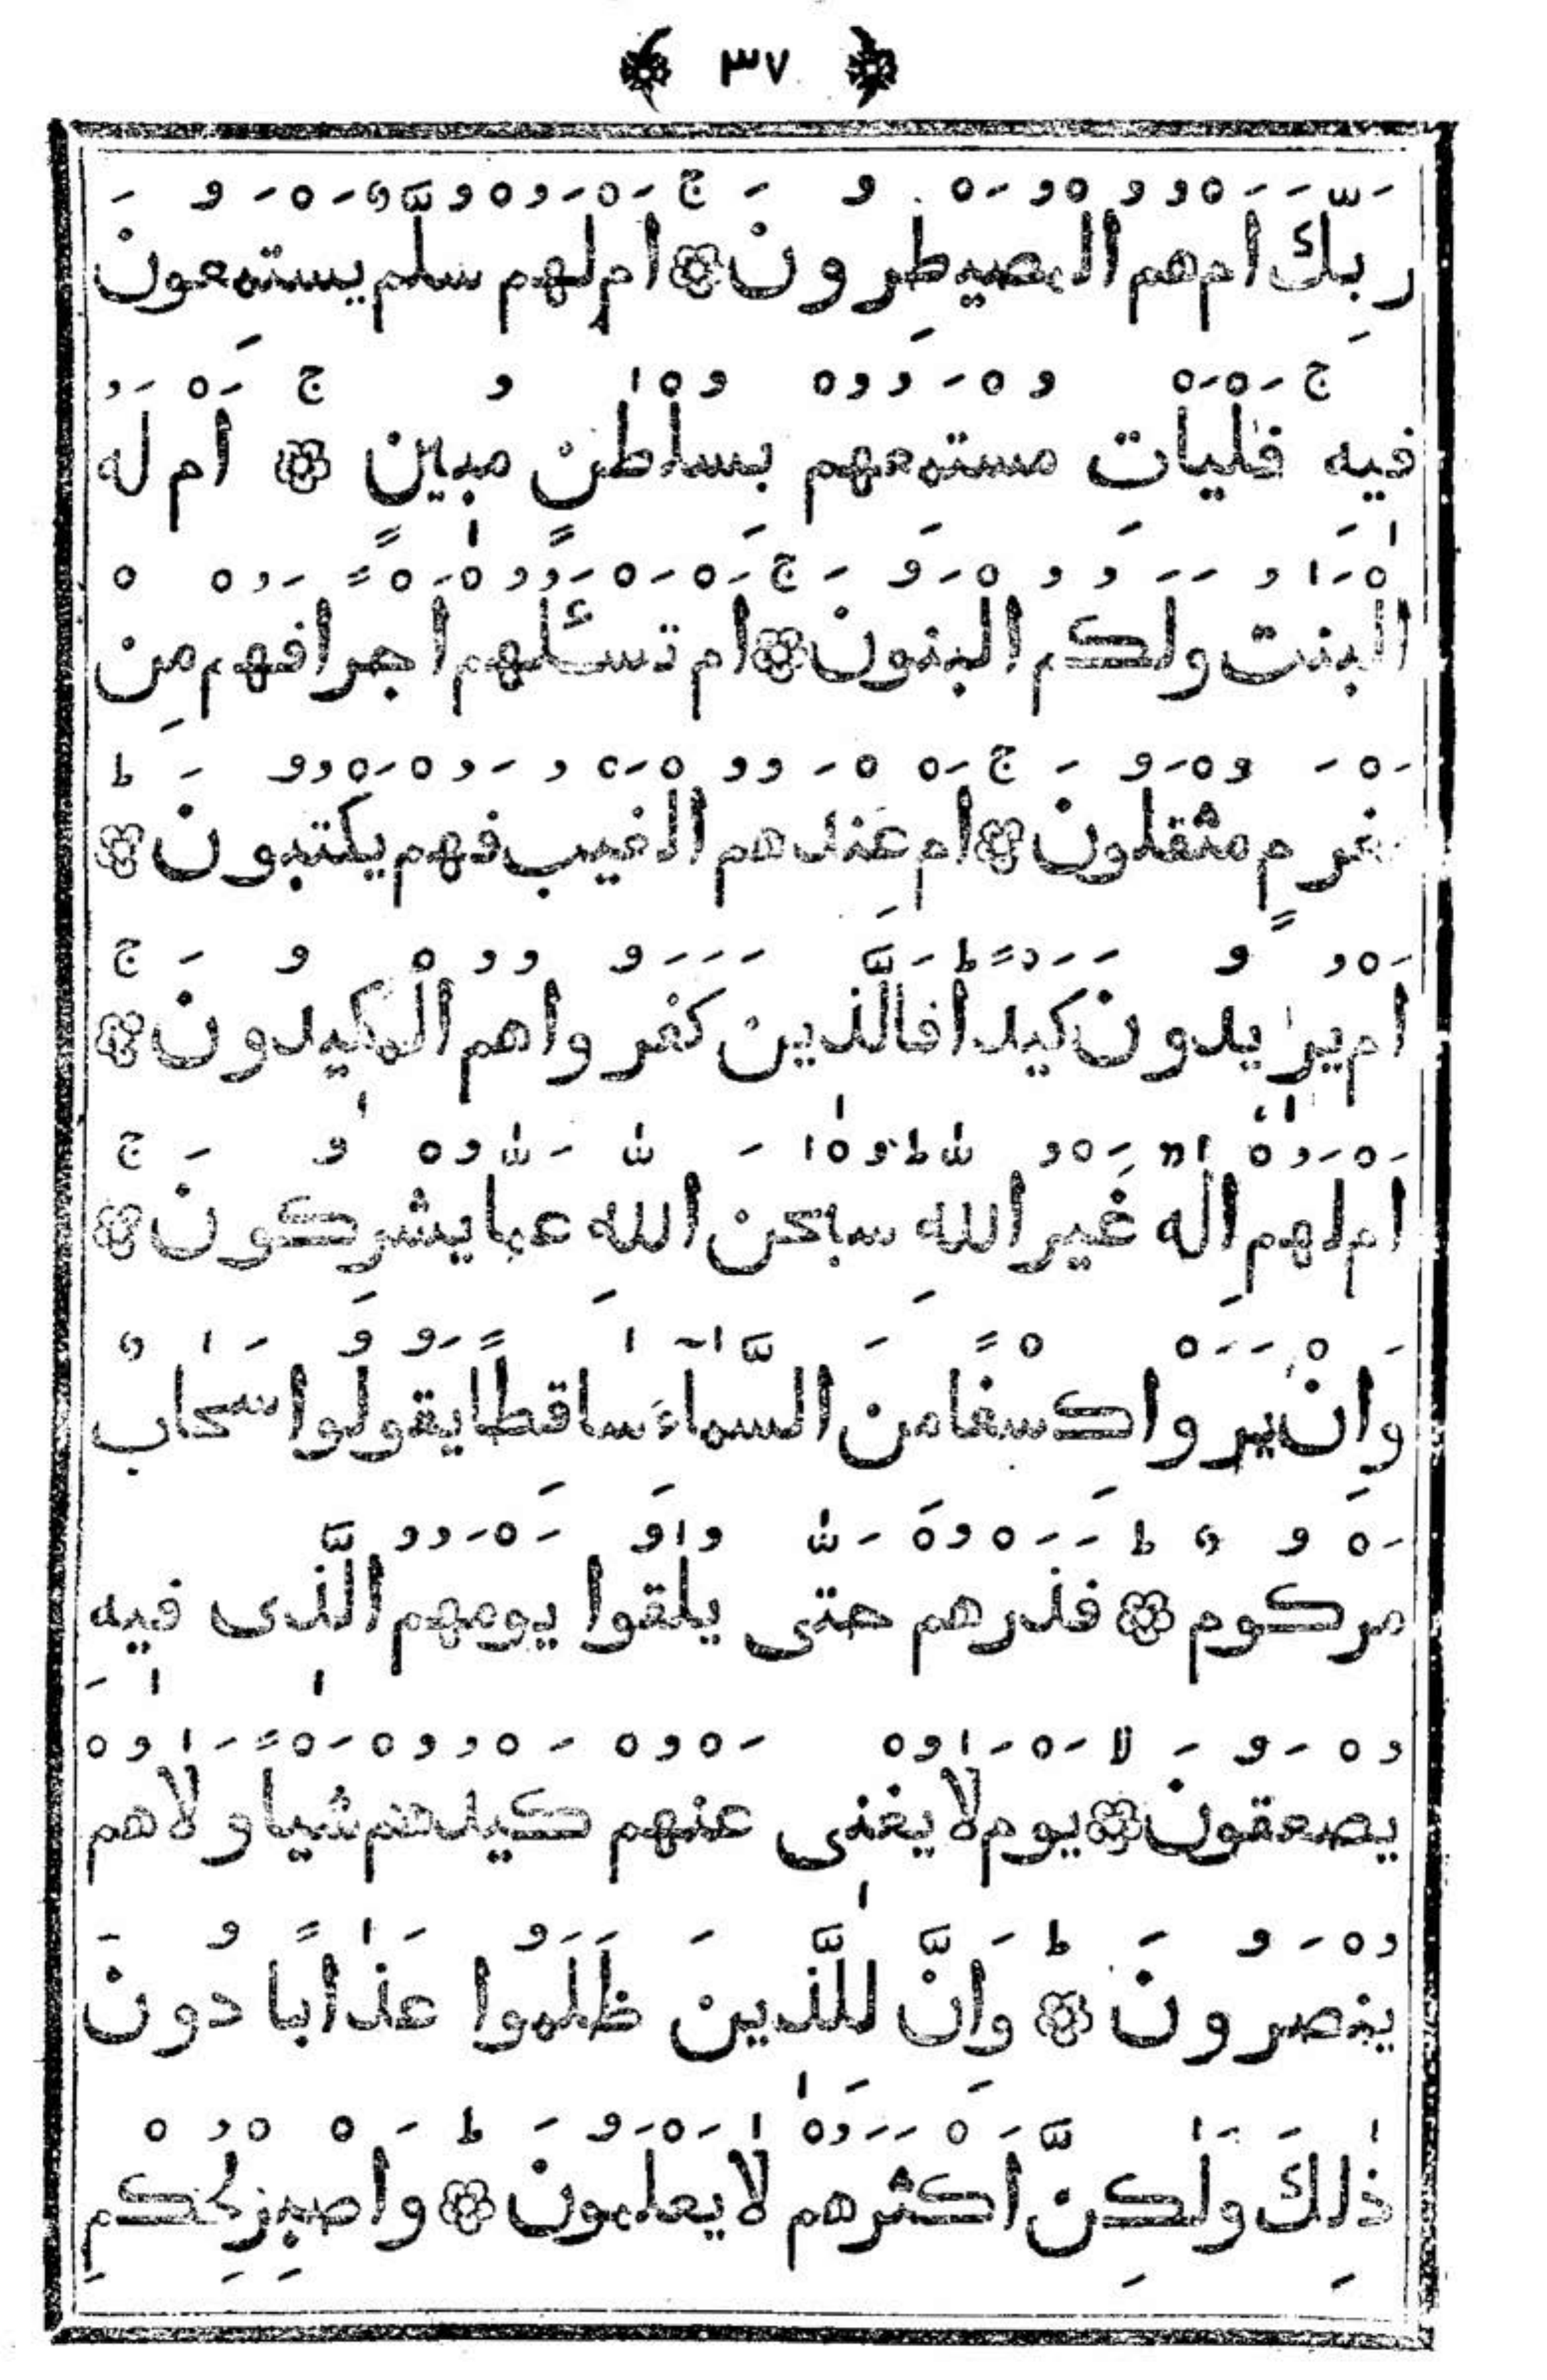 ٣٧
رَبِّكَ اَمْ هُمُ الْمُصَيْطِرُونَ ۞ اَمْ لَهُمْ سُلَّمٌ يَسْتَمِعُونَ
فِيهِ ۚ فَلْيَأْتِ مُسْتَمِعُهُمْ بِسُلْطٰنٍ مُبِينٍ ۚ ۞ اَمْ لَهُ
الْبَنٰتُ وَلَكُمُ الْبَنُونَ ۞ اَمْ تَسْـَٔلُهُمْ اَجْرًا فَهُمْ مِنْ
مَغْرَمٍ مُثْقَلُونَ ۚ ۞ اَمْ عِنْدَهُمُ الْغَيْبُ فَهُمْ يَكْتُبُونَ ۞ ط
اَمْ يُرِيدُونَ كَيْدًا ط فَالَّذِينَ كَفَرُوا هُمُ الْمَكِيدُونَ ۚ ۞
اَمْ لَهُمْ اِلٰهٌ غَيْرُ اللّٰهِ ط سُبْحٰنَ اللّٰهِ عَمَّا يُشْرِكُونَ ۚ ۞
وَاِنْ يَرَوْا كِسْفًا مِنَ السَّمَآءِ سَاقِطًا يَقُولُوا سَحَابٌ
مَرْكُومٌ ط ۞ فَذَرْهُمْ حَتّٰى يُلٰقُوا يَوْمَهُمُ الَّذِى فِيهِ
يُصْعَقُونَ ۙ ۞ يَوْمَ لَا يُغْنِى عَنْهُمْ كَيْدُهُمْ شَيْـًٔا وَلَا هُمْ
يُنْصَرُونَ ط ۞ وَاِنَّ لِلَّذِينَ ظَلَمُوا عَذَابًا دُونَ
ذٰلِكَ وَلٰكِنَّ اَكْثَرَهُمْ لَا يَعْلَمُونَ ط ۞ وَاصْبِرْ لِحُكْمِ